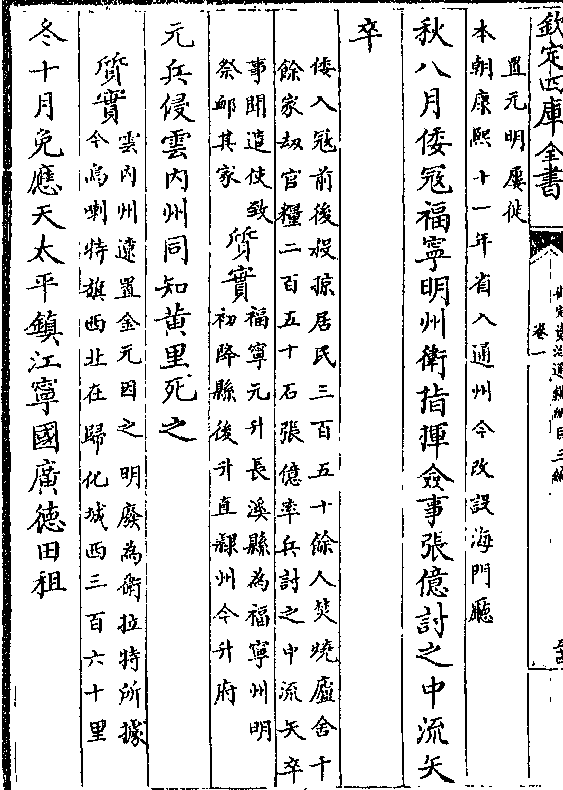 欽定四庫全書
御定資治通鑑綱目三編
卷一
置元明屢徙
本朝康熙十一年省入通州今改設海門廳
秋八月倭冦福寧明州衛指揮僉事張億討之中流矢
卒
倭入冦前後殺掠居民三百五十餘人焚燒廬舍千
餘家刼官糧二百五十石張億率兵討之中流矢卒
事聞遣使致
祭䘏其家
質實
福寧元升長溪縣為福寧州明
初降縣後升直𨽻州今升府
元兵侵雲内州同知黄里死之
質實
雲内州遼置金元因之明廢為衛拉特所據
今烏喇特旗西北在歸化城西三百六十里
冬十月免應天太平鎮江寧國廣德田租